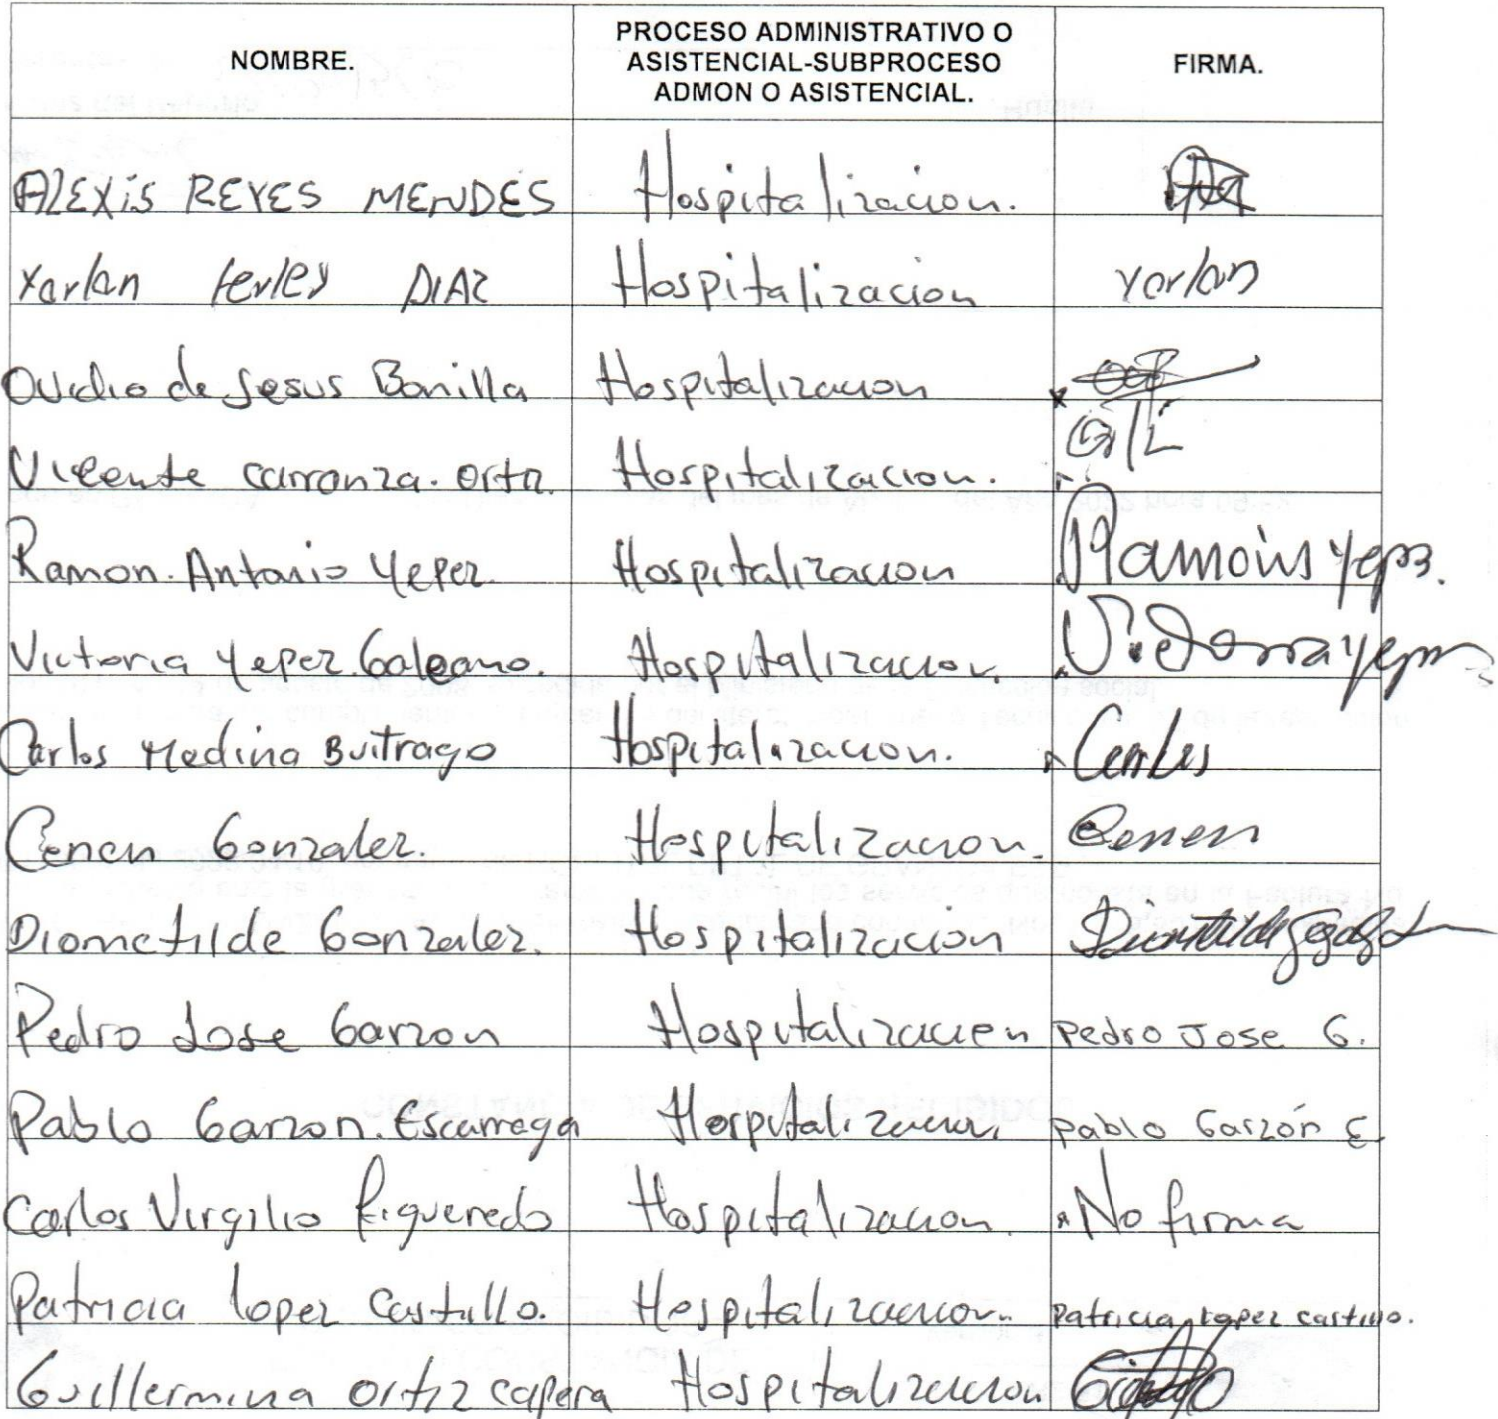 NOMBRE. PROCESO ADMINISTRATIVO O ASISTENCIAL-SUBPROCESO ADMON O ASISTENCIAL. FIRMA.
ALEXIS REYES MENDES Hospitalizacion.
Yarlan ferley DIAZ Hospitalizacion Yarlan
Ovidio de Jesus Bonilla Hospitalizacion
Vicente carranza. Ortz. Hospitalizacion.
Ramon. Antonio Yepez. Hospitalizacion Ramoins Yeps.
Victoria Yepez Galeano. Hospitalizacion.
Carlos Medina Buitrago Hospitalizacion. Carlos
Cenen Gonzalez. Hospitalizacion. Cenen
Diometilde Gonzalez. Hospitalizacion
Pedro Jose Garzon Hospitalizacion Pedro Jose G.
Pablo Garzon. Escarraga Hospitalizacion Pablo Garzón E
Carlos Virgilio Figueredo Hospitalizacion No firma
Patricia Lopez Castillo. Hospitalizacion. Patricia Lopez castillo.
Guillermina Ortiz capera Hospitalizacion